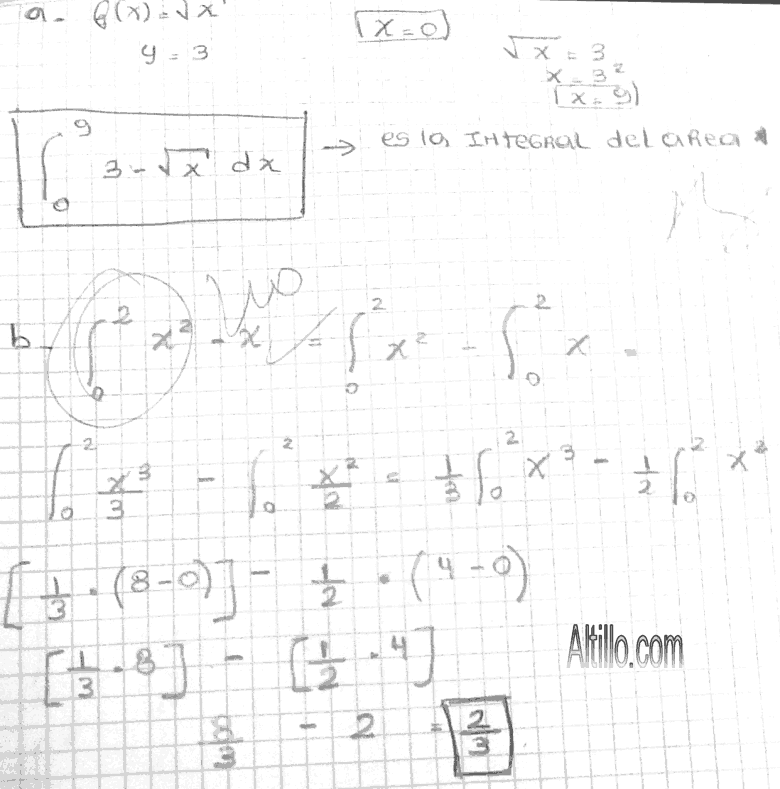 a- f(x)=√x
y = 3
x=0
√x = 3
x = 3²
x=9
∫₀⁹ 3-√x dx → es la INTEGRAL del area
b- ∫₀² x² - x = ∫₀² x² - ∫₀² x =
∫₀² x³/3 - ∫₀² x²/2 = 1/3 ∫₀² x³ - 1/2 ∫₀² x²
[1/3 · (8-0)] - 1/2 · (4-0)
[1/3 · 8] - [1/2 · 4]
Altillo.com
8/3 - 2 = 2/3